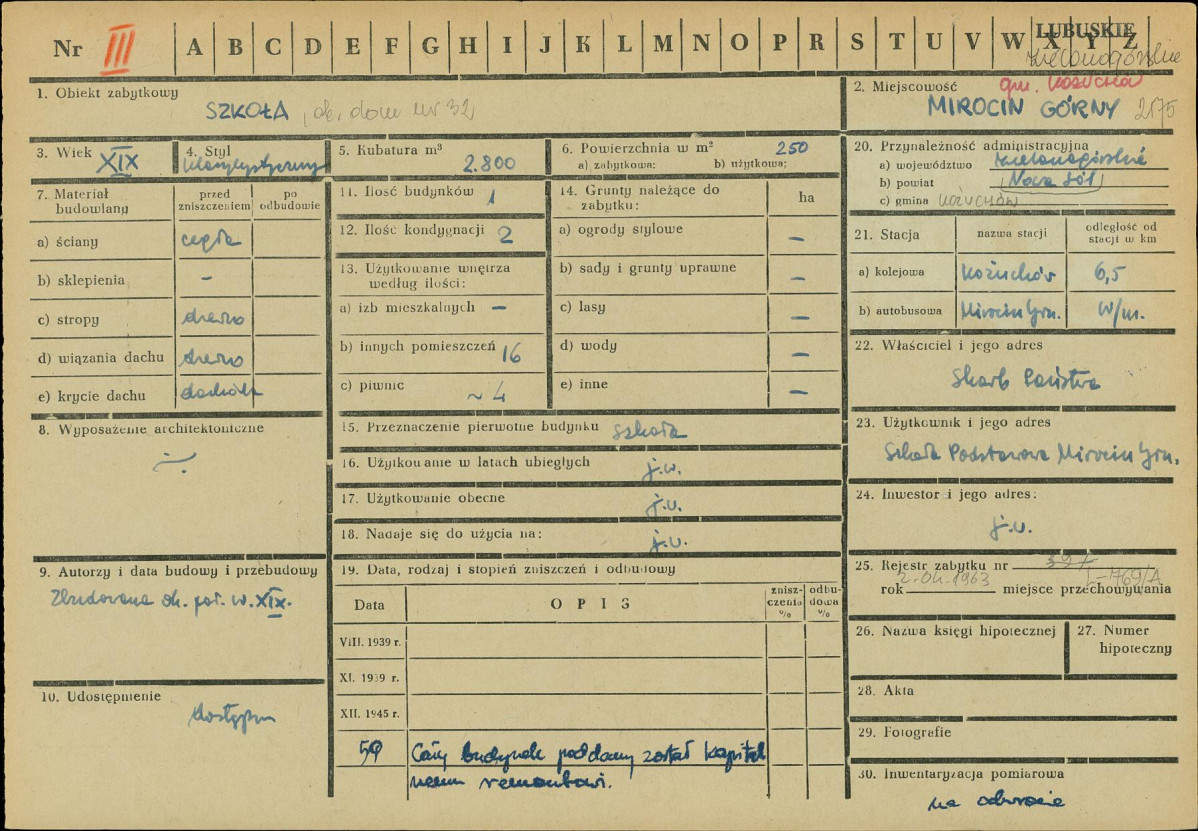 Nr III A B C D E F G H I J K L M N O P R S T U V W X Y Z
LUBUSKIE
Zielonogórskie
1. Obiekt zabytkowy
SZKOŁA, ob. dom nr 32
2. Miejscowość gm. KOŻUCHÓW
MIROCIN GÓRNY 2175
3. Wiek XIX
4. Styl klasycystyczny
5. Kubatura m³ 2.800
6. Powierzchnia w m² 250
a) zabytkowa: b) użytkowa:
7. Materiał budowlany
przed zniszczeniem
po odbudowie
a) ściany cegła
b) sklepienia –
c) stropy drewno
d) wiązania dachu drewno
e) krycie dachu dachówk
8. Wyposażenie architektoniczne
9. Autorzy i data budowy i przebudowy
Zbudowana ok. poł. w. XIX.
10. Udostępnienie
dostępny
11. Ilość budynków 1
12. Ilość kondygnacji 2
13. Użytkowanie wnętrza
według ilości:
a) izb mieszkalnych –
b) innych pomieszczeń 16
c) piwnic ~ 4
14. Grunty należące do
zabytku:
ha
a) ogrody stylowe –
b) sady i grunty uprawne –
c) lasy –
d) wody –
e) inne –
15. Przeznaczenie pierwotne budynku szkoła
16. Użytkowanie w latach ubiegłych j.w.
17. Użytkowanie obecne j.w.
18. Nadaje się do użycia na: j.w.
19. Data, rodzaj i stopień zniszczeń i odbudowy
Data
OPIS
zniszczenia %
odbudowa %
VIII. 1939 r.
XI. 1939 r.
XII. 1945 r.
59 Cały budynek poddany został kapital
nemu remontowi.
20. Przynależność administracyjna
a) województwo Zielonogórskie
b) powiat Nowa Sól
c) gmina KOŻUCHÓW
21. Stacja
nazwa stacji
odległość od
stacji w km
a) kolejowa Kożuchów 6,5
b) autobusowa Mirocin Grn. w/m.
22. Właściciel i jego adres
Skarb Państwa
23. Użytkownik i jego adres
Szkoła Podstawowa Mirocin Grn.
24. Inwestor i jego adres:
j.w.
25. Rejestr zabytku nr
2.04.1963 L-769/A
rok miejsce przechowywania
26. Nazwa księgi hipotecznej
27. Numer
hipoteczny
28. Akta
29. Fotografie
30. Inwentaryzacja pomiarowa
na odwrocie